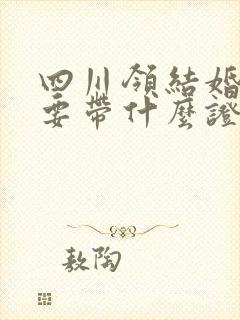 四川領結婚
要帶什麼證
敖陶